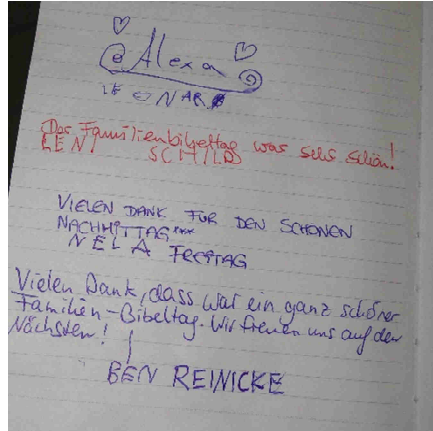 @Alexa
LEONARD
Der Familienbibeltag war sehr schön!
LENI SCHILD
VIELEN DANK FÜR DEN SCHÖNEN
NACHMITTAG
NELA FREITAG
Vielen Dank, dass war ein ganz schöner
Familien-Bibeltag. Wir freuen uns auf den
Nächsten!
BEN REINICKE